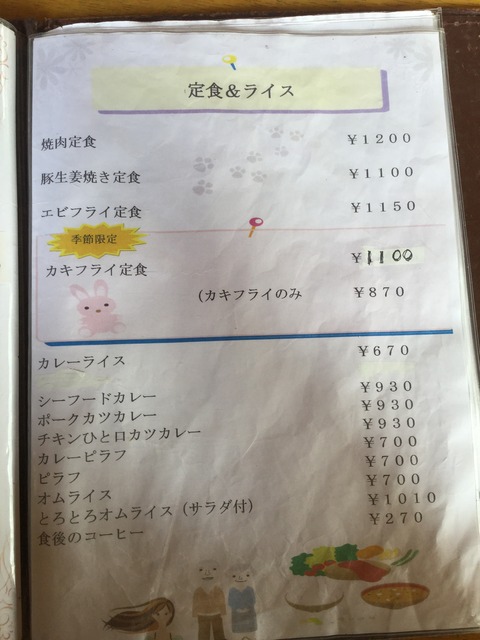 定食＆ライス
焼肉定食 ￥１２００
豚生姜焼き定食 ￥１１００
エビフライ定食 ￥１１５０
季節限定
カキフライ定食 ￥1100
（カキフライのみ ￥８７０
カレーライス ￥６７０
シーフードカレー ￥９３０
ポークカツカレー ￥９３０
チキンひと口カツカレー ￥９３０
カレーピラフ ￥７００
ピラフ ￥７００
オムライス ￥７００
とろとろオムライス（サラダ付） ￥１０１０
食後のコーヒー ￥２７０